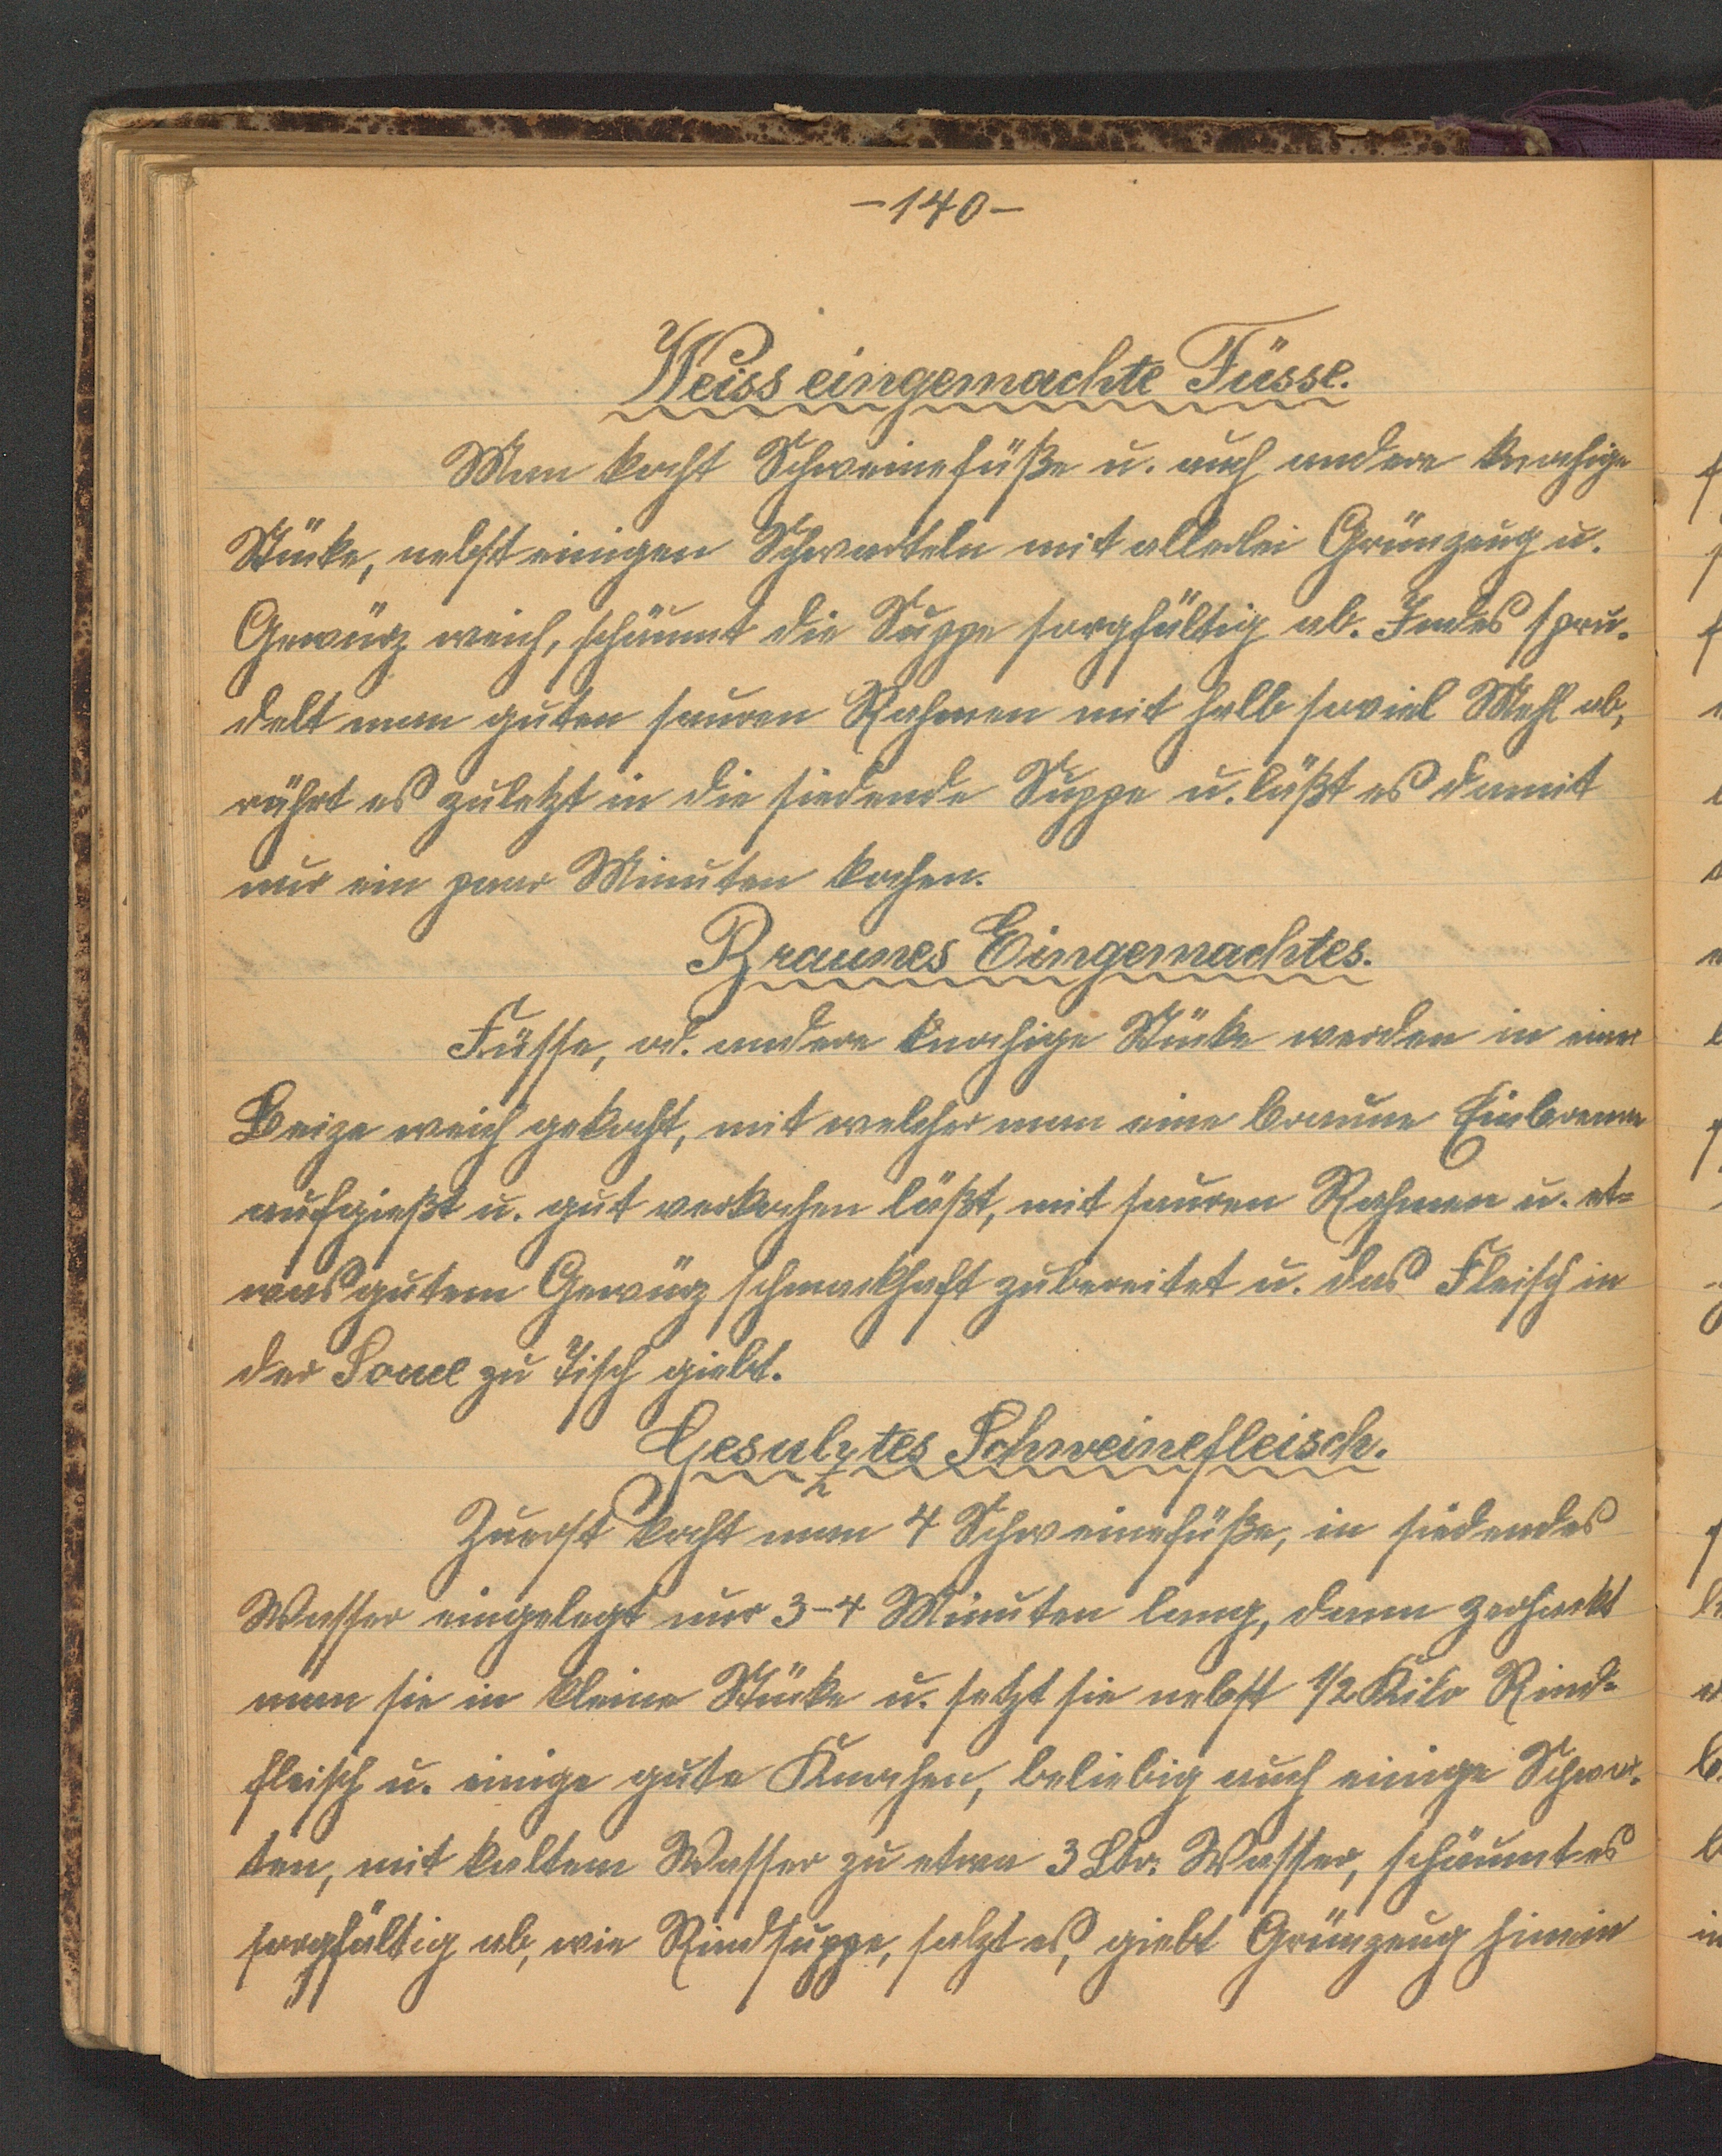 -140-
Weiss eingemachte Füsse.
Man kocht Schweinefüße u. auch andere knochige
Stücke, nebst einigen Schwarteln mit allerlei Grünzeug u.
Gewürz weich, schäumt die Suppe sorgfältig ab. Indes spru-
delt man guten sauren Rahmen mit halb soviel Mehl ab,
rührt es zuletzt in die siedende Suppe u. läßt es damit
nur ein paar Minuten kochen.
Braunes Eingemachtes.
Füsse, od. andere knochige Stücke werden in einer
Beize weich gekocht, mit welcher man eine braune Einbrenne
aufgießt u. gut verkochen läßt, mit sauren Rahmen u. et=
was gutem Gewürz schmackhaft zubereitet u. das Fleisch in
der Soucе zu Tisch giebt.
Gesulztes Schweinefleisch.
Zuerst kocht man 4 Schweinefüße, in siedendes
Wasser eingelegt nur 3-4 Minuten lang, dann zerhackt
man sie in kleine Stücke u. setzt sie nebst 1/2 Kilo Rind-
fleisch u. einige gute Knochen, beliebig auch einige Schwar-
ten, mit kaltem Wasser zu etwa 3 Ltr. Wasser, schäumt es
sorgfältig ab, wie Rindsuppe, salzt es, giebt Grünzeug hinein